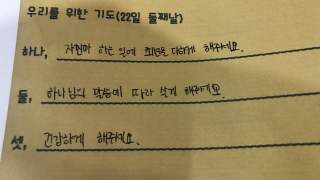 우리를 위한 기도(22일 둘째날)
하나, 자신이 하는 일에 최선을 다하게 해주세요.
둘, 하나님의 말씀에 따라 살게 해주세요.
셋, 건강하게 해주세요.